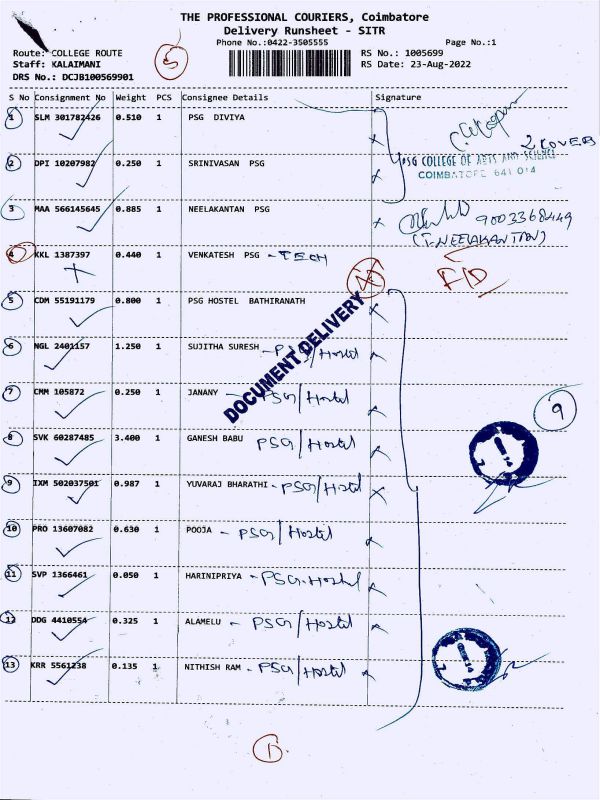 THE PROFESSIONAL COURIERS, Coimbatore
Delivery Runsheet - SITR
Phone No.:0422-3505555 Page No.:1
Route: COLLEGE ROUTE RS No.: 1005699
Staff: KALAIMANI RS Date: 23-Aug-2022
DRS No.: DCJB100569901
5
S No Consignment No Weight PCS Consignee Details Signature
1 SLM 301782426 0.510 1 PSG DIVIYA
2 COVERS
2 DPI 10207982 0.250 1 SRINIVASAN PSG
PSG COLLEGE OF ARTS AND SCIENCE
COIMBATORE 641 014
3 MAA 566145645 0.885 1 NEELAKANTAN PSG
9003368449
(T-NEELAKANTAN)
4 KKL 1387397 0.440 1 VENKATESH PSG - TECH
F/D
5 CDM 55191179 0.800 1 PSG HOSTEL BATHIRANATH
DOCUMENT DELIVERY
6 NGL 2401157 1.250 1 SUJITHA SURESH - PSG/Hostel
7 CMM 105872 0.250 1 JANANY - PSG/Hostel
9
8 SVK 60287485 3.400 1 GANESH BABU PSG/Hostel
9 IXM 502037501 0.987 1 YUVARAJ BHARATHI - PSG/Hostel
10 PRO 13607082 0.630 1 POOJA - PSG/Hostel
11 SVP 1366461 0.050 1 HARINIPRIYA - PSG-Hostel
12 DDG 4410554 0.325 1 ALAMELU - PSG/Hostel
13 KRR 5561238 0.135 1 NITHISH RAM - PSG/Hostel